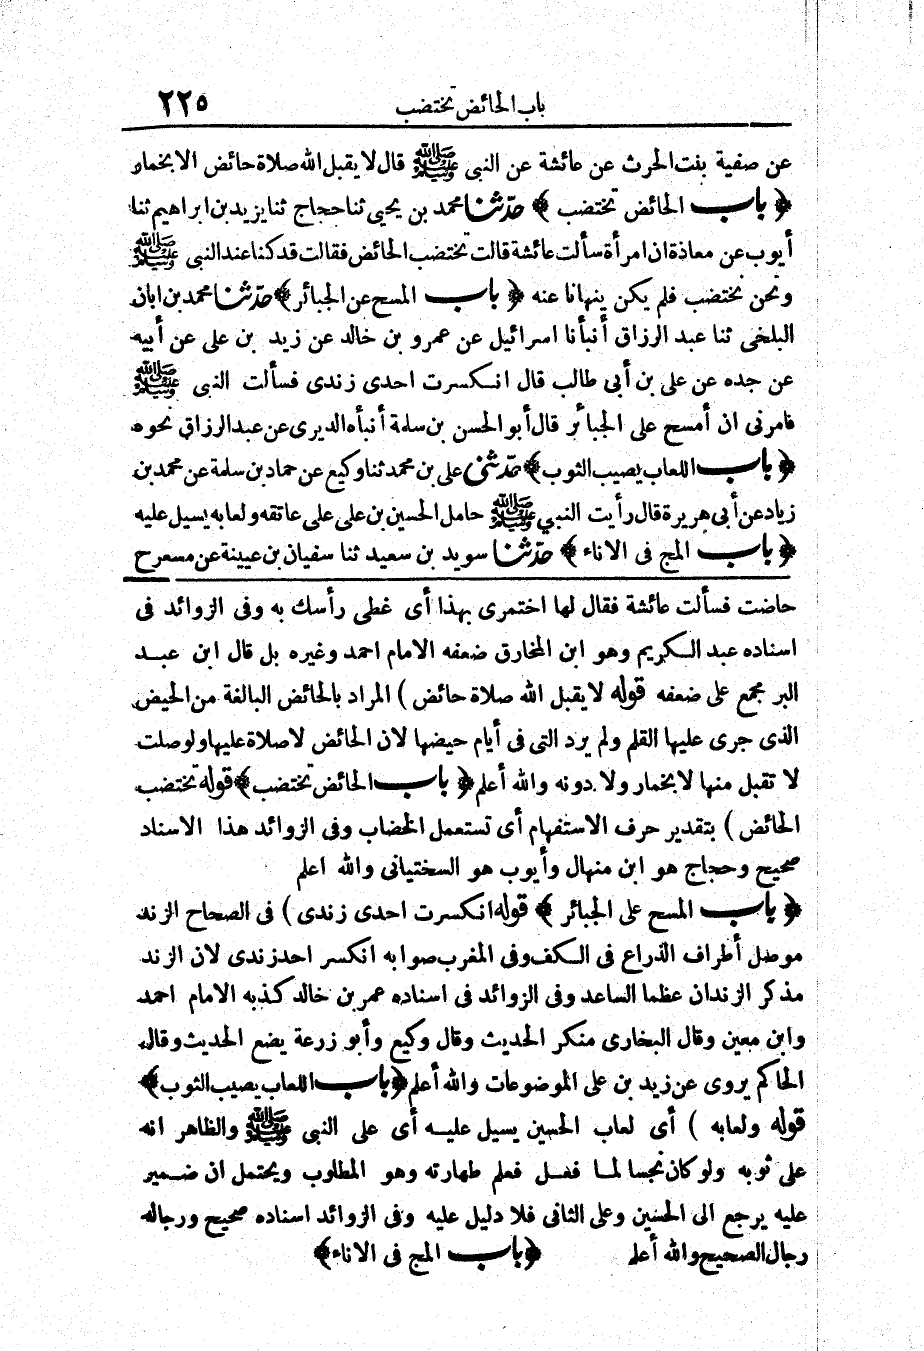 باب الحائض تختضب ٢٢٥
عن صفية بنت الحرث عن عائشة عن النبى ﷺ قال لا يقبل الله صلاة حائض الا بخمار
﴿ باب الحائض تختضب ﴾ حدّثنا محمد بن يحيى ثنا حجاج ثنا يزيد بن ابراهيم ثنا
أيوب عن معاذة ان امرأة سألت عائشة قالت تختضب الحائض فقالت قد كنا عند النبى ﷺ
ونحن نختضب فلم يكن ينهانا عنه ﴿ باب المسح عن الجبائر ﴾ حدّثنا محمد بن ابان
البلخى ثنا عبد الرزاق أنبأنا اسرائيل عن عمرو بن خالد عن زيد بن على عن أبيه
عن جده عن على بن أبى طالب قال انكسرت احدى زندى فسألت النبى ﷺ
فامرنى ان أمسح على الجبائر قال أبو الحسن بن سلمة أنبأه الديرى عن عبد الرزاق نحوه
﴿ باب اللعاب يصيب الثوب ﴾ حدّثنى على بن محمد ثنا وكيع عن حماد بن سلمة عن محمد بن
زياد عن أبى هريرة قال رأيت النبي ﷺ حامل الحسين بن على على عاتقه ولعابه يسيل عليه
﴿ باب المج فى الاناء ﴾ حدّثنا سويد بن سعيد ثنا سفيان بن عيينة عن مسعر ح
حاضت فسألت عائشة فقال لها اختمرى بهذا أى غطى رأسك به وفى الزوائد فى
اسناده عبد الكريم وهو ابن المخارق ضعفه الامام احمد وغيره بل قال ابن عبد
البر مجمع على ضعفه قوله لا يقبل الله صلاة حائض ) المراد بالحائض البالغة من الحيض
الذى جرى عليها القلم ولم يرد التى فى أيام حيضها لان الحائض لا صلاة عليها ولو صلت
لا تقبل منها لا بخمار ولا دونه والله أعلم ﴿ باب الحائض تختضب ﴾ قوله تختضب
الحائض ) بتقدير حرف الاستفهام أى تستعمل الخضاب وفى الزوائد هذا الاسناد
صحيح وحجاج هو ابن منهال وأيوب هو السختيانى والله اعلم
﴿ باب المسح على الجبائر ﴾ قوله انكسرت احدى زندى ) فى الصحاح الزند
موصل أطراف الذراع فى الكف وفى المغرب صوابه انكسر احد زندى لان الزند
مذكر الزندان عظما الساعد وفى الزوائد فى اسناده عمر بن خالد كذبه الامام احمد
وابن معين وقال البخارى منكر الحديث وقال وكيع وأبو زرعة يضع الحديث وقال
الحاكم يروى عن زيد بن على الموضوعات والله أعلم ﴿ باب اللعاب يصيب الثوب ﴾
قوله ولعابه ) أى لعاب الحسين يسيل عليه أى على النبى ﷺ والظاهر انه
على ثوبه ولو كان نجسا لما فعل فعلم طهارته وهو المطلوب ويحتمل ان ضمير
عليه يرجع الى الحسين وعلى الثانى فلا دليل عليه وفى الزوائد اسناده صحيح ورجاله
رجال الصحيح والله أعلم ﴿ باب المج فى الاناء ﴾